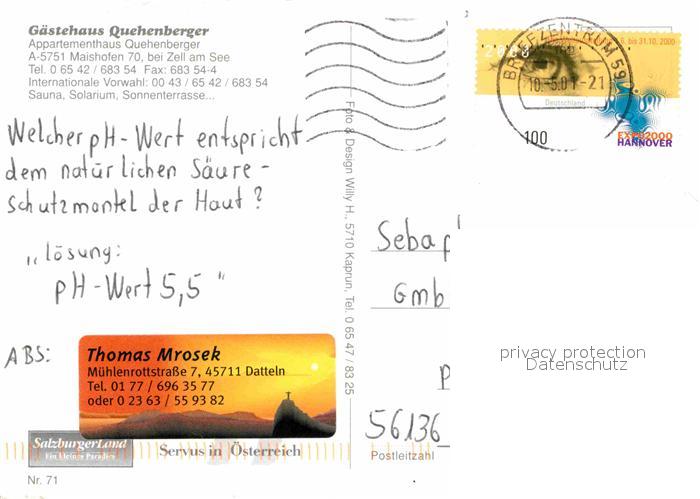 Gästehaus Quehenberger
Appartementhaus Quehenberger
A-5751 Maishofen 70, bei Zell am See
Tel. 0 65 42 / 683 54 Fax: 683 54-4
Internationale Vorwahl: 00 43 / 65 42 / 683 54
Sauna, Solarium, Sonnenterrasse...
Welcher pH-Wert entspricht
dem natürlichen Säure-
schutzmantel der Haut?
"lösung:
pH-Wert 5,5"
ABS:
Thomas Mrosek
Mühlenrottstraße 7, 45711 Datteln
Tel. 01 77 / 696 35 77
oder 0 23 63 / 55 93 82
SalzburgerLand
Ein kleines Paradies
Servus in Österreich
Nr. 71
Foto & Design Willy H., 5710 Kaprun, Tel. 0 65 47 / 83 25
BRIEFZENTRUM 59
10.-5.01-21
6. bis 31.10. 2000
Deutschland
100
EXPO2000
HANNOVER
Sebap
Gmb
P
56136
Postleitzahl
privacy protection
Datenschutz